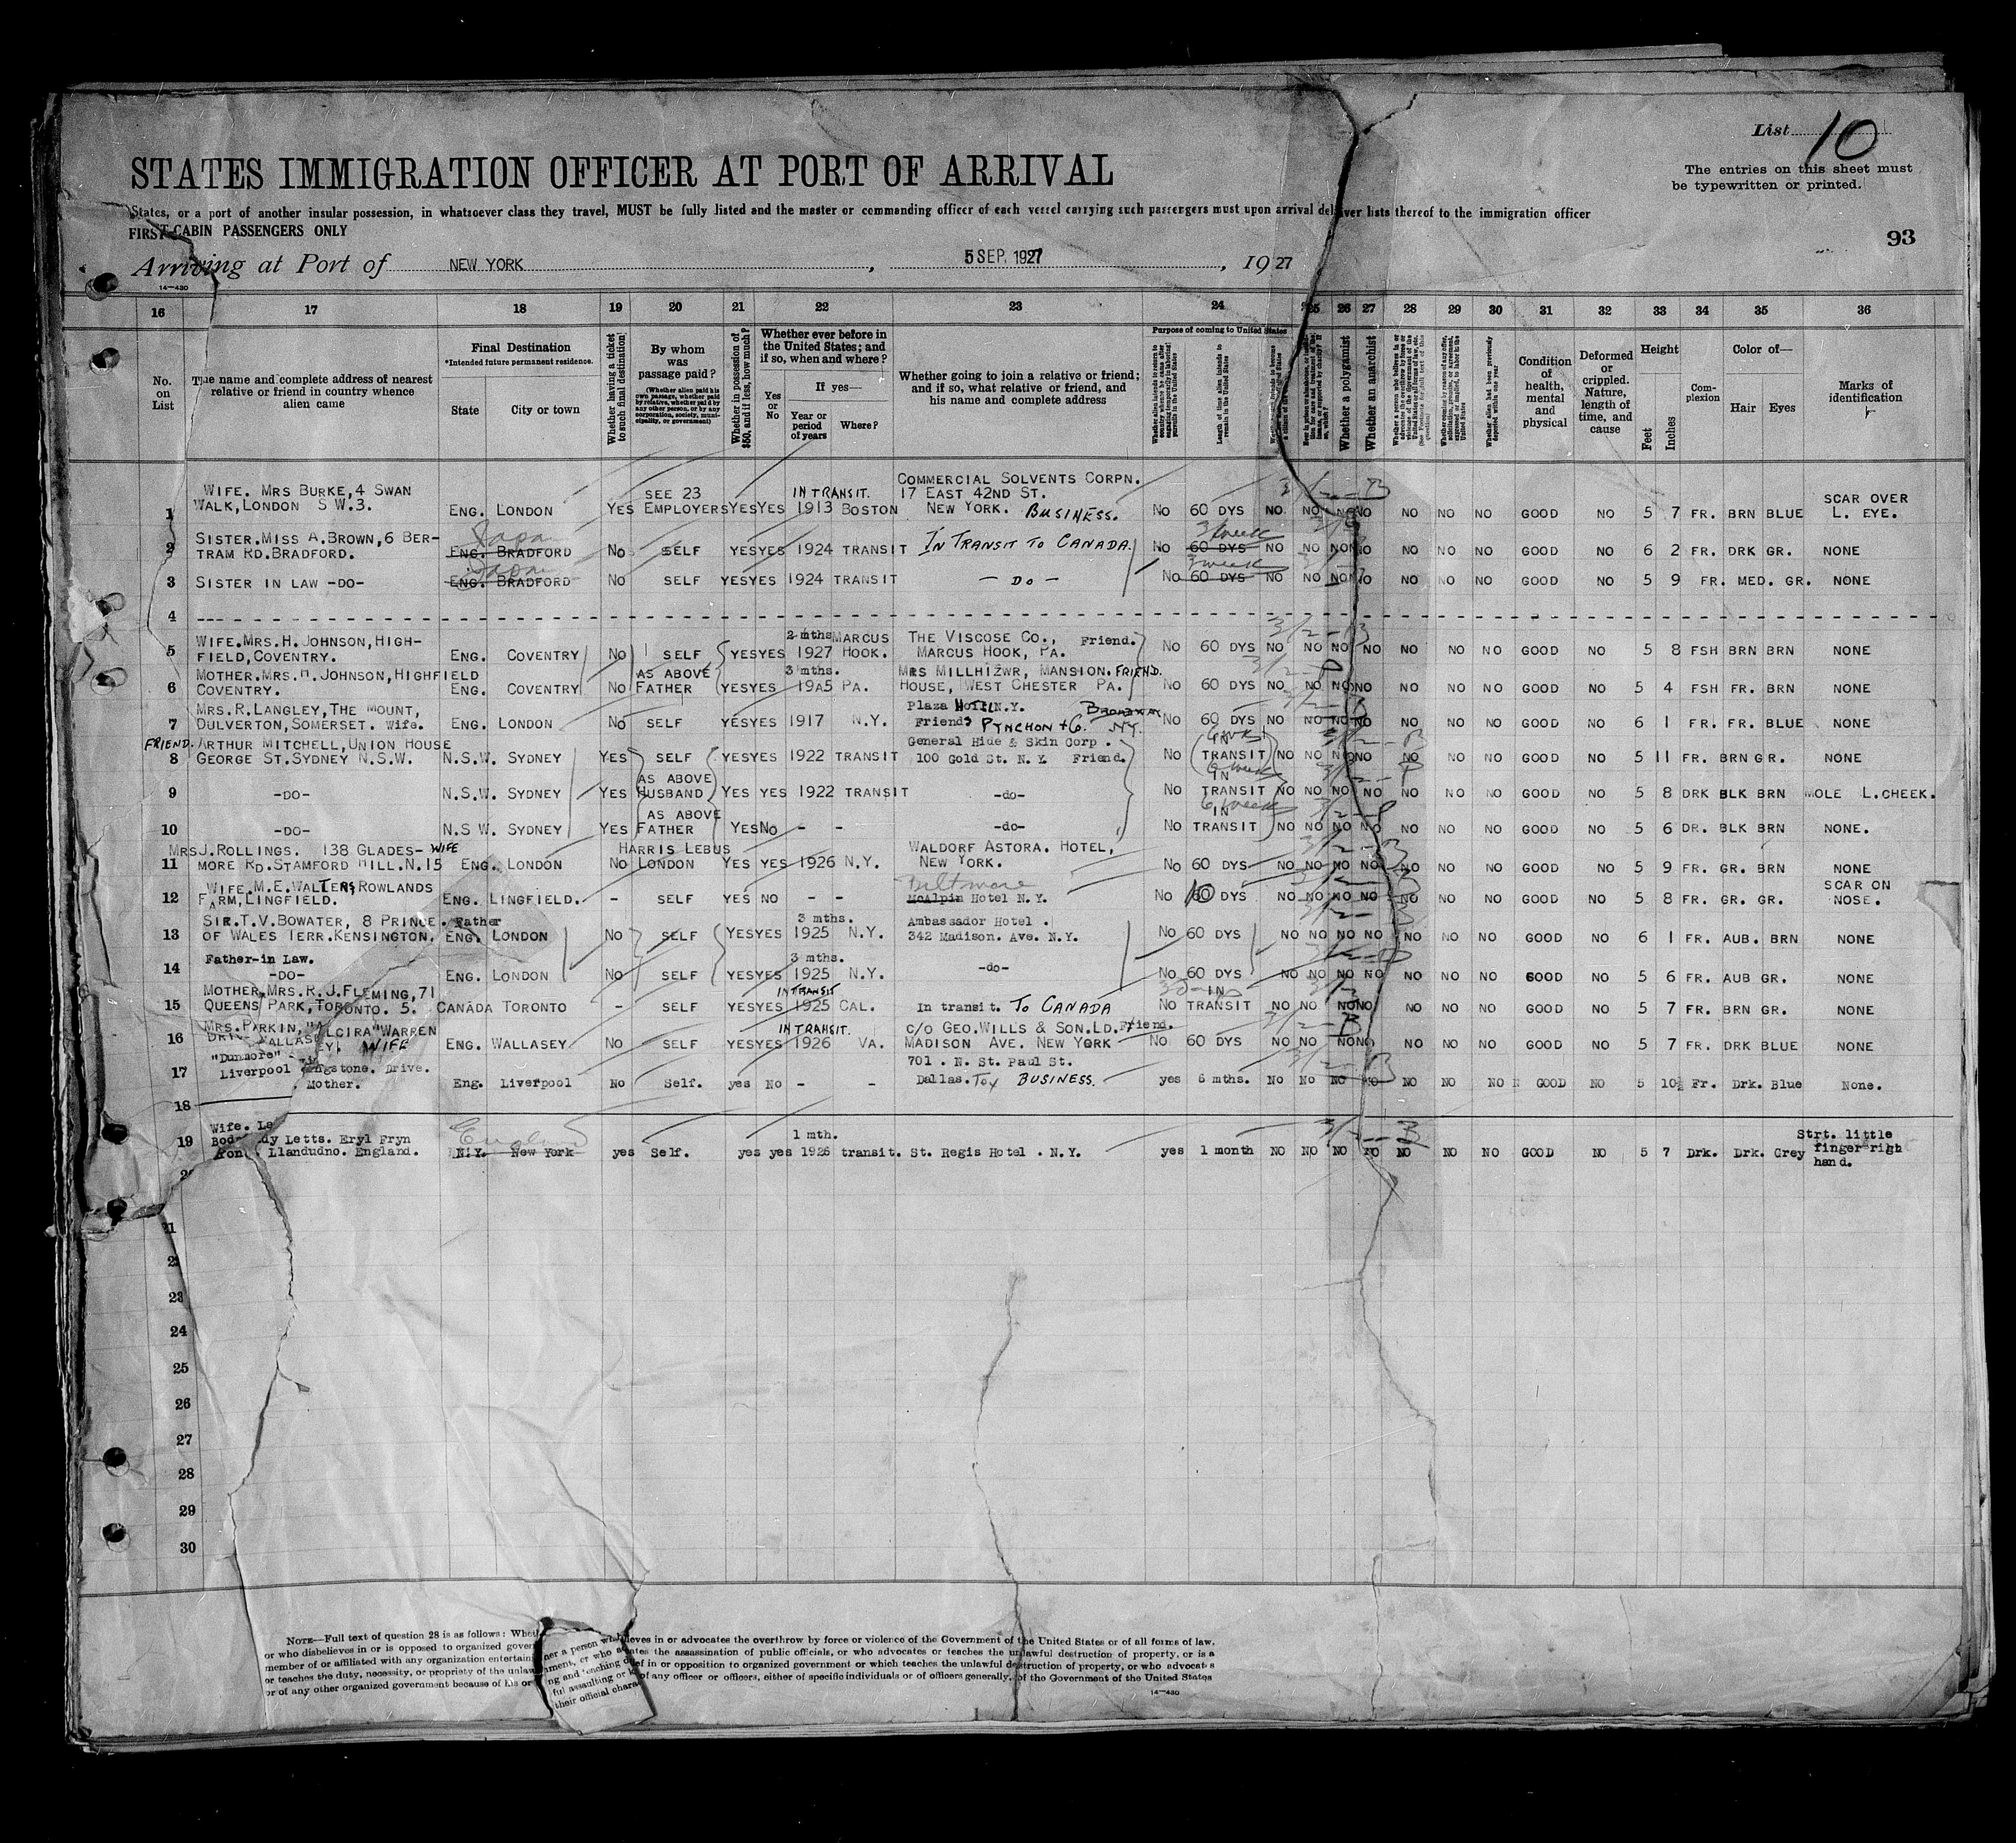 List 10
The entries on this sheet must
be typewritten or printed.
STATES IMMIGRATION OFFICER AT PORT OF ARRIVAL
States, or a port of another insular possession, in whatsoever class they travel, MUST be fully listed and the master or commanding officer of each vessel carrying such passengers must upon arrival deliver lists thereof to the immigration officer
FIRST-CABIN PASSENGERS ONLY
93
Arriving at Port of NEW YORK, 5 SEP. 1927, 1927
14—430
16 17 18 19 20 21 22 23 24 25 26 27 28 29 30 31 32 33 34 35 36
No. on List
The name and complete address of nearest relative or friend in country whence alien came
Final Destination
*Intended future permanent residence.
State
City or town
Whether having a ticket to such final destination
By whom was passage paid?
(Whether alien paid his own passage, whether paid by relative, whether paid by any other person, or by any corporation, society, municipality, or government)
Whether in possession of $50, and if less, how much?
Whether ever before in the United States; and if so, when and where?
Yes or No
If yes—
Year or period of years
Where?
Whether going to join a relative or friend; and if so, what relative or friend, and his name and complete address
Purpose of coming to United States
Length of time alien intends to remain in the United States
Whether a polygamist
Whether an anarchist
Condition of health, mental and physical
Deformed or crippled. Nature, length of time, and cause
Height
Feet
Inches
Complexion
Color of—
Hair
Eyes
Marks of identification
1 WIFE. MRS BURKE, 4 SWAN WALK, LONDON S W.3. ENG. LONDON YES SEE 23 EMPLOYERS YES YES IN TRANSIT. 1913 BOSTON COMMERCIAL SOLVENTS CORPN. 17 EAST 42ND ST. NEW YORK. BUSINESS. NO 60 DYS NO NO NO NO NO NO GOOD NO 5 7 FR. BRN BLUE SCAR OVER L. EYE.
2 SISTER. MISS A. BROWN, 6 BERTRAM RD. BRADFORD. ENG. BRADFORD NO SELF YES YES 1924 TRANSIT IN TRANSIT TO CANADA. NO 3 week 60 DYS NO NO NO NO NO NO NO GOOD NO 6 2 FR. DRK GR. NONE
3 SISTER IN LAW -DO- ENG. BRADFORD NO SELF YES YES 1924 TRANSIT — DO — NO 3 week 60 DYS NO NO NO NO NO NO NO GOOD NO 5 9 FR. MED. GR. NONE
4 ---
5 WIFE. MRS. H. JOHNSON, HIGHFIELD, COVENTRY. ENG. COVENTRY NO SELF YES YES 2 mths 1927 MARCUS HOOK. THE VISCOSE CO., MARCUS HOOK, PA. Friend. NO 60 DYS NO NO NO NO NO NO NO GOOD NO 5 8 FSH BRN BRN NONE
6 MOTHER. MRS. H. JOHNSON, HIGHFIELD COVENTRY. ENG. COVENTRY NO AS ABOVE FATHER YES YES 3 mths. 19A5 PA. MRS MILLHIZWR, MANSION. FRIEND. HOUSE, WEST CHESTER PA. NO 60 DYS NO NO NO NO NO NO NO GOOD NO 5 4 FSH FR. BRN NONE
7 MRS. R. LANGLEY, THE MOUNT, DULVERTON, SOMERSET. Wife. ENG. LONDON NO SELF YES YES 1917 N.Y. Plaza Hotel N.Y. Friends PYNCHON + Co. BROADWAY NY. NO 60 DYS NO NO NO NO NO NO NO GOOD NO 6 1 FR. FR. BLUE NONE
8 FRIEND. ARTHUR MITCHELL, UNION HOUSE GEORGE ST. SYDNEY N.S.W. N.S.W. SYDNEY YES SELF YES YES 1922 TRANSIT General Hide & Skin Corp. 100 Gold St. N.Y. Friend. NO IN TRANSIT NO NO NO NO NO NO NO GOOD NO 5 11 FR. BRN GR. NONE
9 -DO- N.S.W. SYDNEY YES AS ABOVE HUSBAND YES YES 1922 TRANSIT -do- NO 6 week IN TRANSIT NO NO NO NO NO NO NO GOOD NO 5 8 DRK BLK BRN MOLE L. CHEEK.
10 -DO- N.S W. SYDNEY YES AS ABOVE FATHER YES NO - - -do- NO 6 week IN TRANSIT NO NO NO NO NO NO NO GOOD NO 5 6 DR. BLK BRN NONE.
11 MRS J. ROLLINGS. 138 GLADES- WIFE MORE RD. STAMFORD HILL. N.15 ENG. LONDON NO HARRIS LEBUS LONDON YES YES 1926 N.Y. WALDORF ASTORA. HOTEL, NEW YORK. NO 60 DYS NO NO NO NO NO NO NO GOOD NO 5 9 FR. GR. BRN NONE
12 WIFE M.E. WALTERS, ROWLANDS FARM, LINGFIELD. ENG. LINGFIELD. - SELF YES NO - - Biltmore McAlpin Hotel N.Y. NO 10 DYS NO NO NO NO NO NO NO GOOD NO 5 8 FR. GR. GR. SCAR ON NOSE.
13 SIR. T.V. BOWATER, 8 PRINCE. Father OF WALES TERR. KENSINGTON. ENG. LONDON NO SELF YES YES 3 mths. 1925 N.Y. Ambassador Hotel. 342 Madison. Ave. N.Y. NO 60 DYS NO NO NO NO NO NO NO GOOD NO 6 1 FR. AUB. BRN NONE
14 Father-in Law. -DO- ENG. LONDON NO SELF YES YES 3 mths. 1925 N.Y. -do- NO 60 DYS NO NO NO NO NO NO NO GOOD NO 5 6 FR. AUB GR. NONE
15 MOTHER, MRS. R. J. FLEMING, 71 QUEENS PARK, TORONTO. 5. CANADA TORONTO - SELF YES YES IN TRANSIT 1925 CAL. In transit. TO CANADA NO IN TRANSIT NO NO NO NO NO NO NO GOOD NO 5 7 FR. BRN GR. NONE
16 MRS. PARKIN, WARREN WIFE ENG. WALLASEY NO SELF YES YES IN TRANSIT. 1926 VA. C/O GEO. WILLS & SON. LD. Friend. MADISON AVE. NEW YORK NO 60 DYS NO NO NO NO NO NO NO GOOD NO 5 7 FR. DRK BLUE NONE
17 "Dunmore" Liverpool Drive. Mother. Eng. Liverpool No Self. yes No - - 701. N. St. Paul St. Dallas. Tex BUSINESS. yes 6 mths. No No NO NO NO NO NO GOOD NO 5 10½ Fr. Drk. Blue None.
18
19 Wife. Letts. Eryl Fryn Llandudno. England. England N.Y. New York yes Self. yes yes 1 mth. 1926 transit. St. Regis Hotel. N.Y. yes 1 month NO NO NO NO NO NO NO GOOD NO 5 7 Drk. Drk. Grey Strt. little finger righ hand.
21
22
23
24
25
26
27
28
29
30
NOTE—Full text of question 28 is as follows: Whether a person who believes in or advocates the overthrow by force or violence of the Government of the United States or of all forms of law,
or who disbelieves in or is opposed to organized government, or who advocates the assassination of public officials, or who advocates or teaches the unlawful destruction of property, or is a
member of or affiliated with any organization entertaining and teaching disbelief in or opposition to organized government or which teaches the unlawful destruction of property, or who advocates
or teaches the duty, necessity, or propriety of the unlawful assaulting or killing of any officer or officers, either of specific individuals or of officers generally, of the Government of the United States
or of any other organized government because of his or their official character
14—430